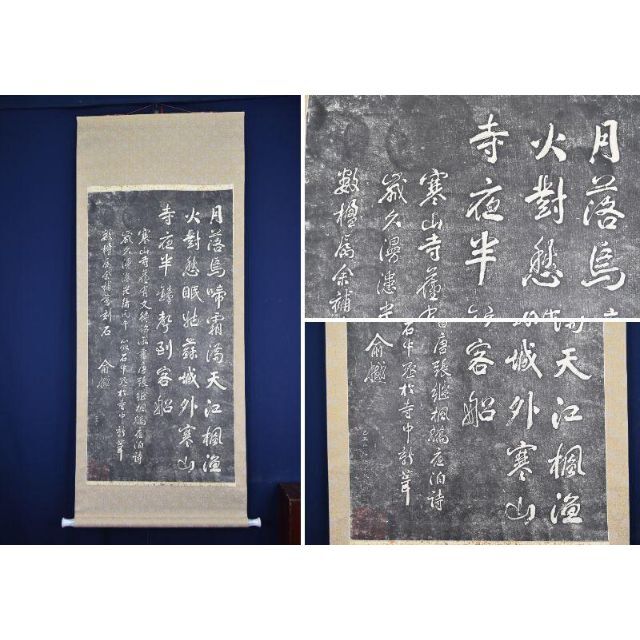 月落烏啼霜滿天江楓漁
火對愁眠姑蘇城外寒山
寺夜半鐘聲到客船
寒山寺舊有文待詔所書唐張繼楓橋夜泊詩
歲久漫漶光緒丙午筱石中丞於寺中新葺
數楹屬余補書刻石 俞樾
月落烏
火對愁
寺夜半
寒山寺舊
歲久漫漶
數楹屬余補
滿天江楓漁
城外寒山
客船
書唐張繼楓橋夜泊詩
石中丞於寺中新葺
俞樾